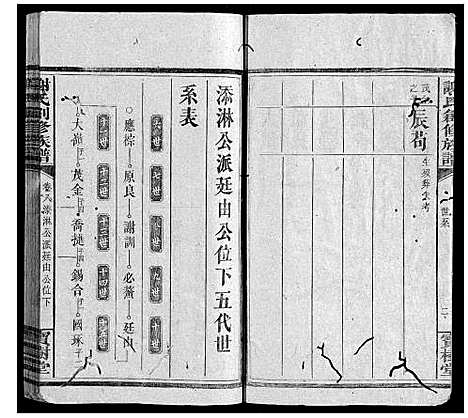 謝氏創修族譜
世系
寶樹堂
茂
之
辰苟
生歿葬失考
添淋公派廷由公位下五代世
系表
六世
七世
八世
九世
十世
應棕
原良
謝訓
必螯
廷由
十一世
十二世
十三世
十四世
十五世
大嵿
茂金
喬捷
錫合
國琢
謝氏創修族譜
卷八添淋公派廷由公位下
寶樹堂